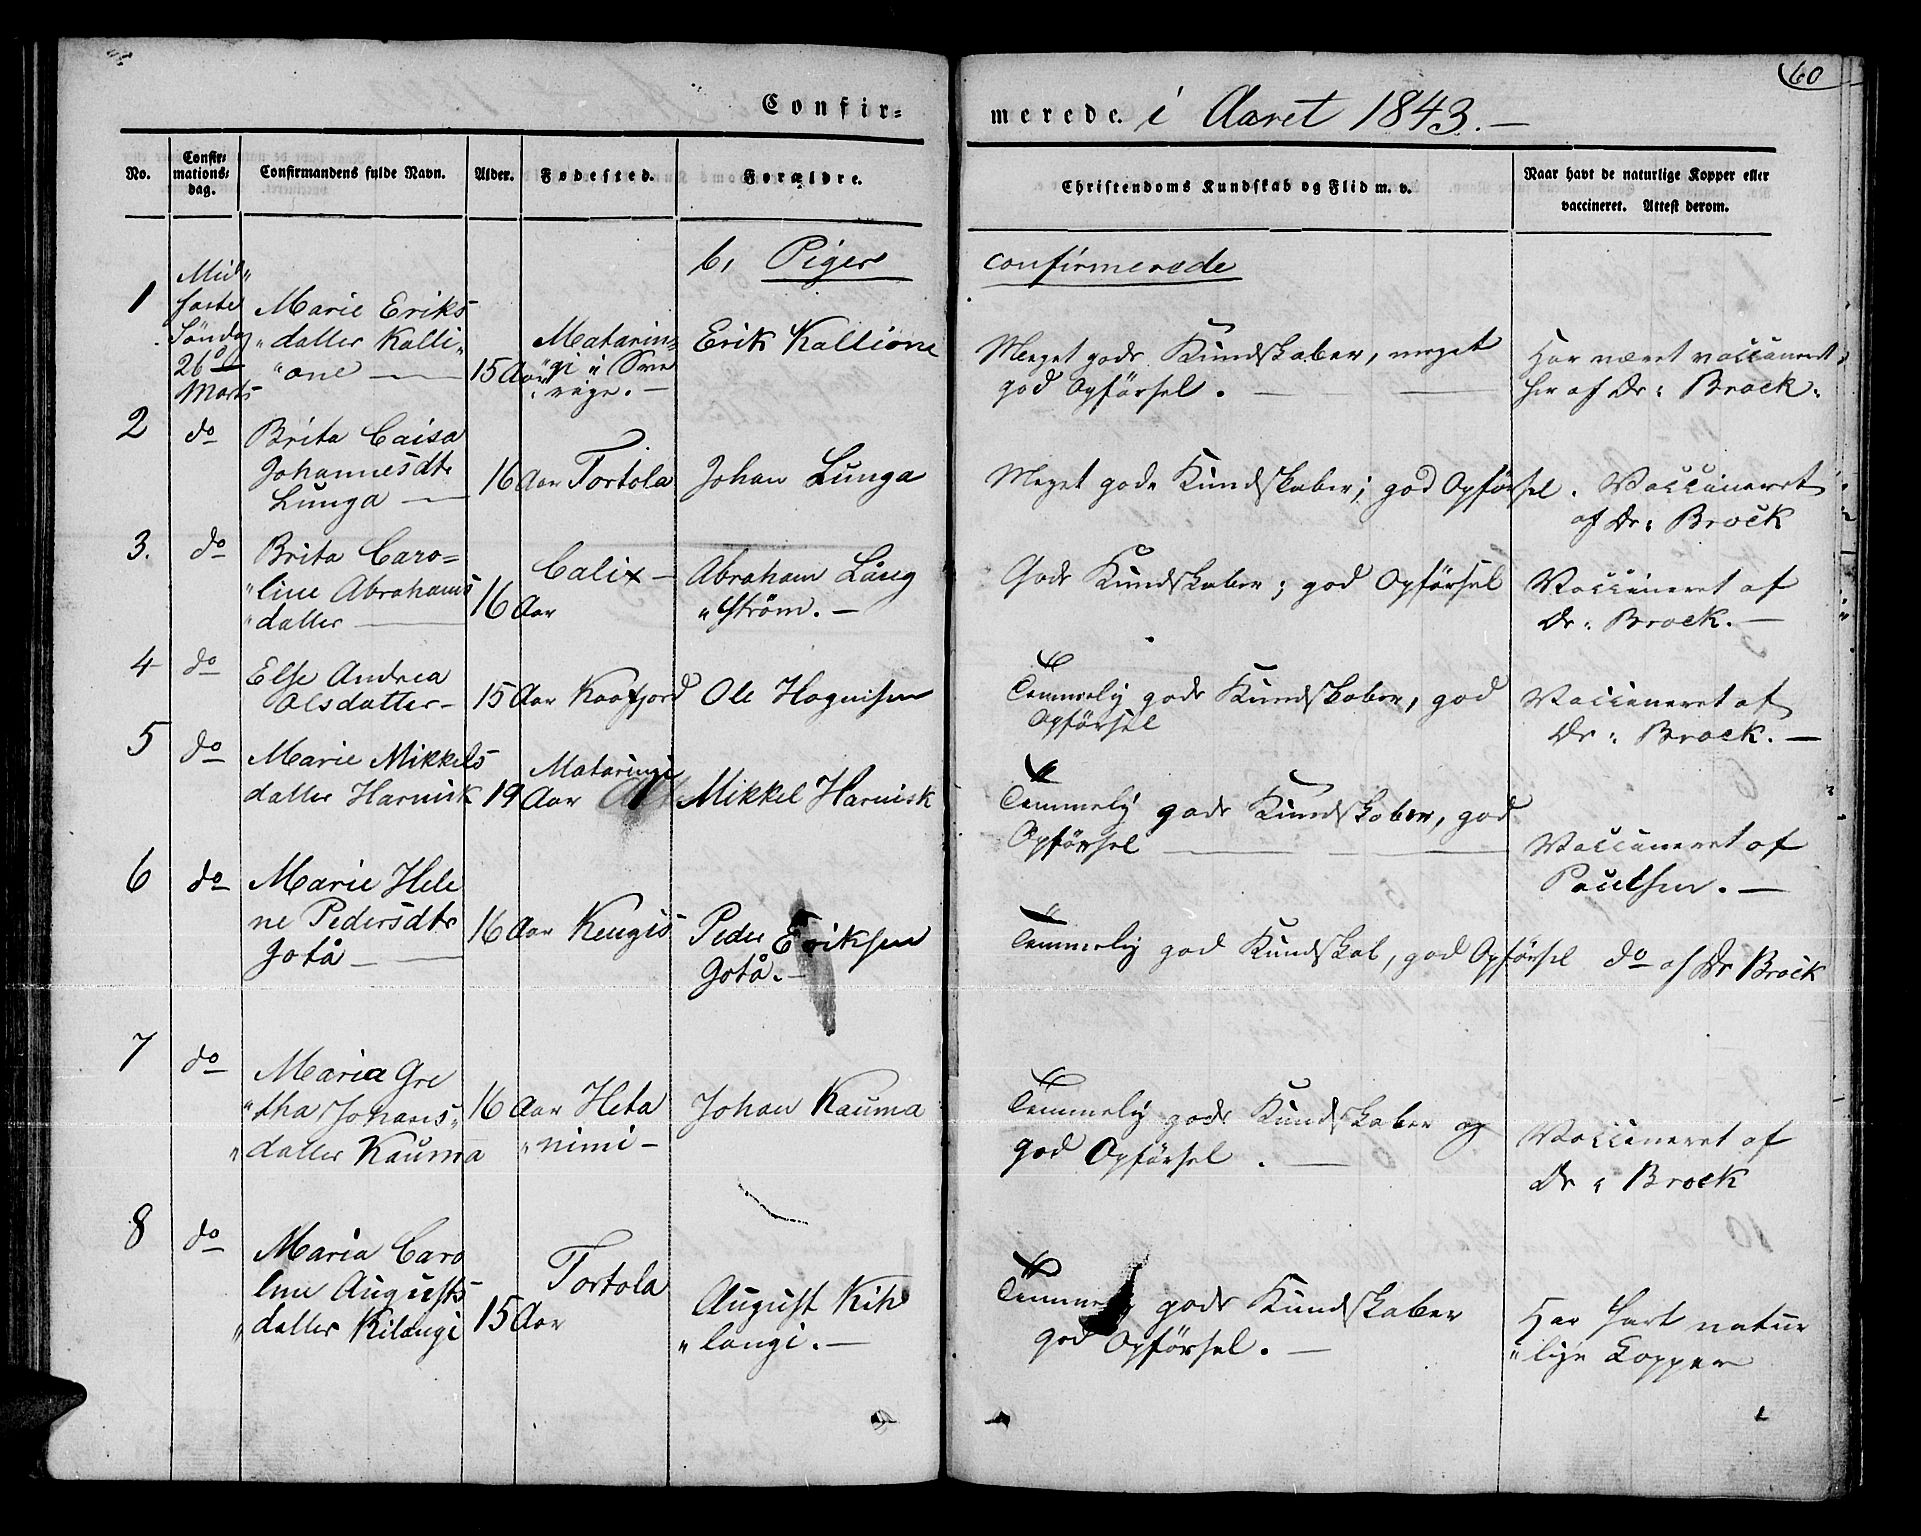 60
Confir=
merede. i Aaret 1843.-
No.
Confir=
mations=
dag.
Confirmandens fulde Navn.
Alder.
Fødested.
Forældre.
Christendoms Kundskab og Flid m. v.
Naar havt de naturlige Kopper eller
vaccineret. Attest derom.
b, Piger
confirmerede
1
Mid"
faste
Søndag
26
Marts
Marie Eriks
"datter Kalli"
"one
15 Aar
Matarin=
"gi i Sve
"rige.-
Erik Kallione
Meget gode Kundskaber, meget
god Opførsel.
Har været vaccineret
her af Dr: Brock.
2
do
Brita Caisa
Johannesdtr
Lunga
16 Aar
Tortola
Johan Lunga
Meget gode Kundskaber; god Opførsel.
Vaccineret
af Dr: Brock
3.
do
Brita Caro=
"line Abrahams
"datter
16 Aar
Calix-
Abraham Lång
"Strøm.-
Gode Kundskaber; god Opførsel
Vaccineret af
Dr: Brock.-
4
do
Else Andrea
Olsdatter-
15 Aar
Kaafjord
Ole Hagnisen
Temmelig gode Kundskaber, god
Opførsel
Vaccineret af
Dr: Brock.-
5
do
Marie Mikkels
datter Harnisk
19 Aar
Mataringi
Mikkel Harnisk
Temmelig gode Kundskaber, god
Opførsel
Vaccineret af
Poulsen.-
6
do
Marie Hele
ne Pedersdtr
Jotå
16 Aar
Kengis
Peder Eriksen
Jotå.-
Temmelig god Kundskab, god Opførsel
do af Dr Brock
7
do
Maria Gre
"tha Johans"
"datter Kauma
16 Aar
Heta
"nimi-
Johan Kauma
Temmelig gode Kundskaber og
god Opførsel.
Vaccineret af
Dr: Brock
8
do
Maria Caro
line Augusts
"datter Kilangi
15 Aar
Tortola
August Kih
"langi.-
Temmelig gode Kundskaber
god Opførsel.-
Har havt natur
"lige Kopper